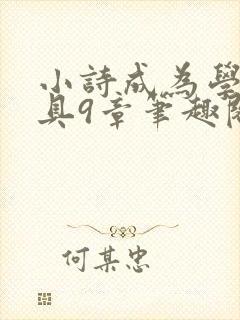 小詩成為學
具9章筆趣閱
何某忠